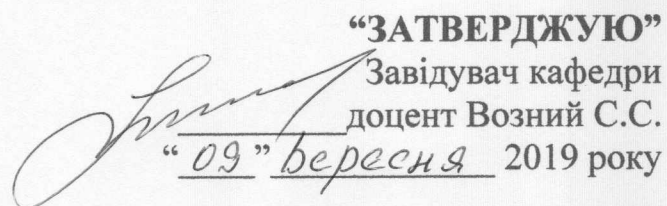 “ЗАТВЕРДЖУЮ”
Завідувач кафедри
доцент Возний С.С.
“ 09 ” вересня 2019 року